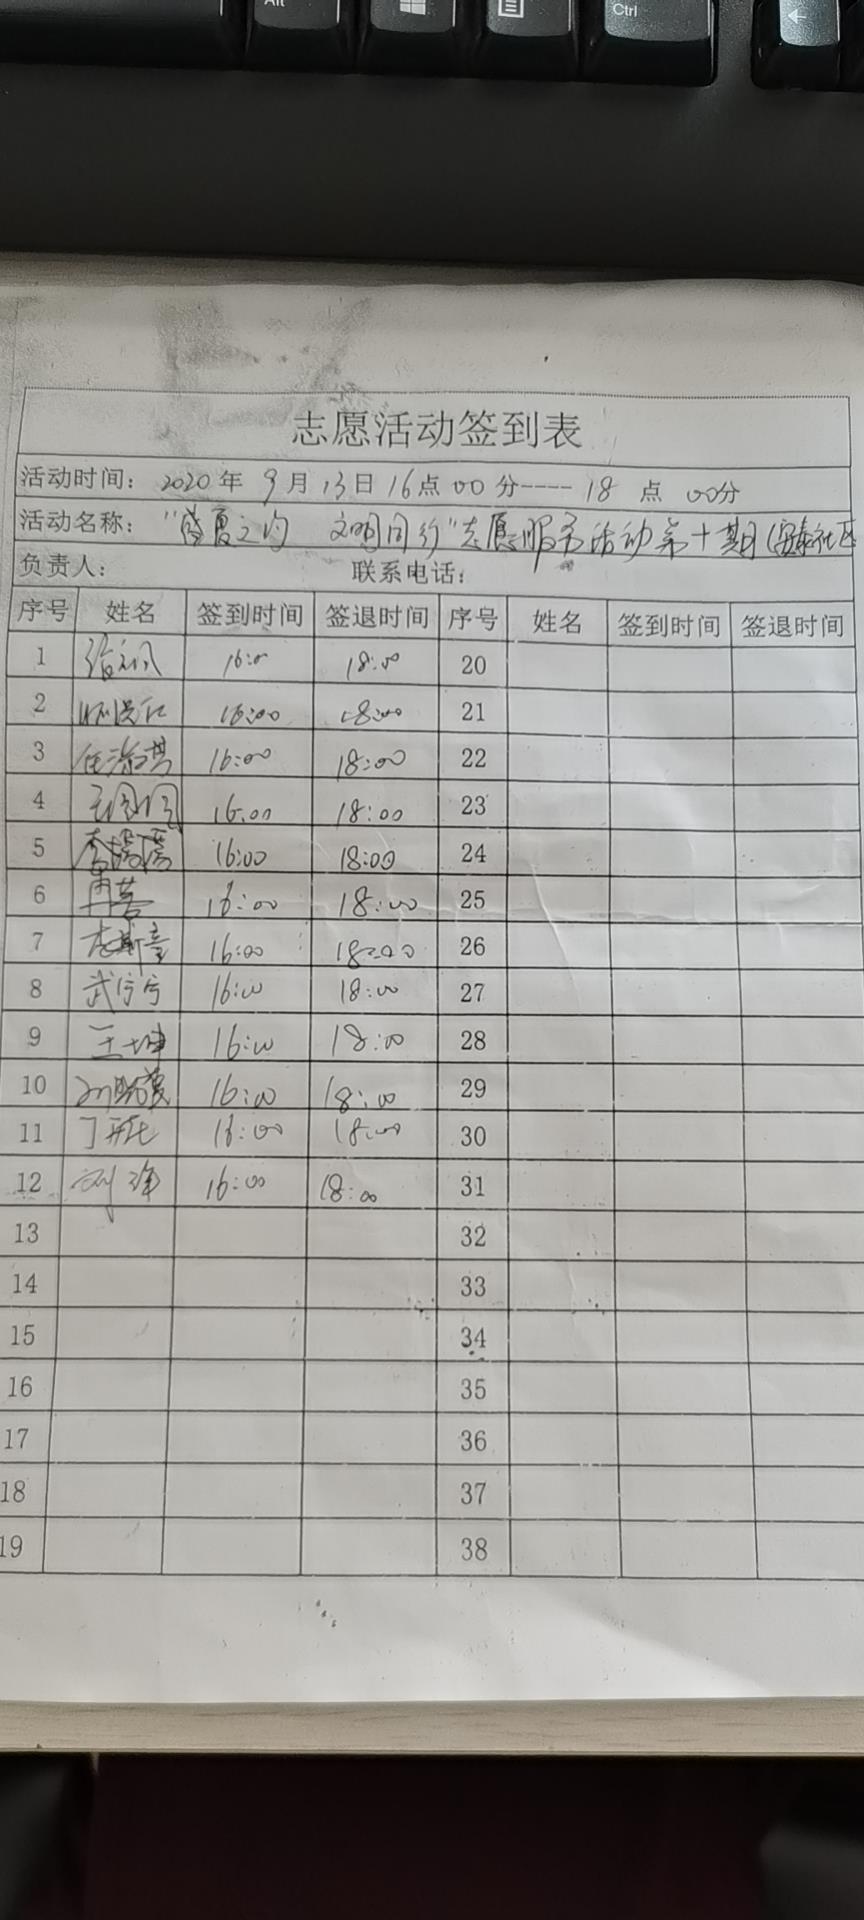 Alt
Ctrl
志愿活动签到表
活动时间: 2020年 9月 13日 16点 00分----18 点 00分
活动名称: "盛夏之约 文明同行"志愿服务活动第十期(安泰社区
负责人: 联系电话:
序号 姓名 签到时间 签退时间 序号 姓名 签到时间 签退时间
1 16:00 18:00 20
2 16:00 18:00 21
3 16:00 18:00 22
4 16:00 18:00 23
5 16:00 18:00 24
6 冉苒 16:00 18:00 25
7 16:00 18:00 26
8 武宁宁 16:00 18:00 27
9 王坤 16:00 18:00 28
10 16:00 18:00 29
11 16:00 18:00 30
12 16:00 18:00 31
13 32
14 33
15 34
16 35
17 36
18 37
19 38